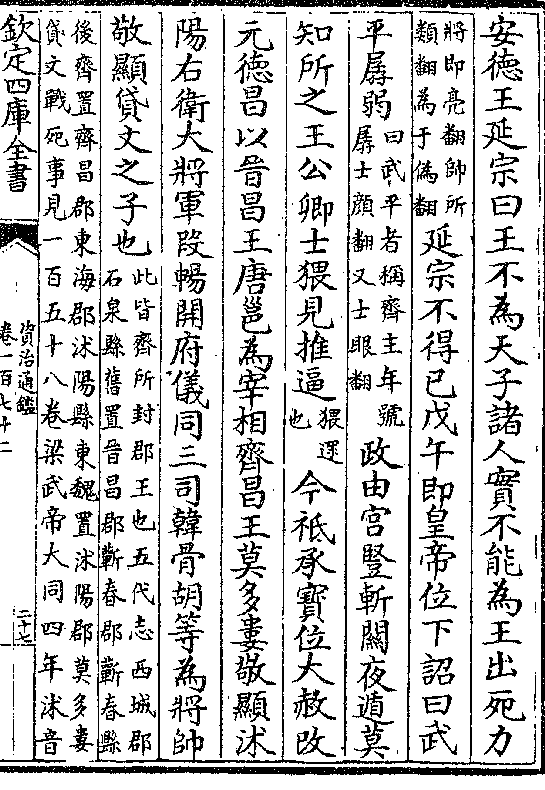 安德王延宗曰王不為天子諸人實不能為王出死力
將即亮翻帥所
類翻為于偽翻
延宗不得已戊午即皇帝位下詔曰武
平孱弱
曰武平者稱齊主年號
孱士顔翻又士眼翻
政由宫豎斬關夜遁莫
知所之王公卿士猥見推逼
猥遝
也
今祗承寶位大赦改
元德昌以晉昌王唐邕為宰相齊昌王莫多婁敬顯沭
陽右衛大將軍段暢開府儀同三司韓骨胡等為將帥
敬顯貸文之子也
此皆齊所封郡王也五代志西城郡
石泉縣舊置晉昌郡蘄春郡蘄春縣
後齊置齊昌郡東海郡沭陽縣東魏置沭陽郡莫多婁
貸文戰死事見一百五十八卷梁武帝大同四年沭音
欽定四庫全書
資治通鑑
卷一百七十二
二十七